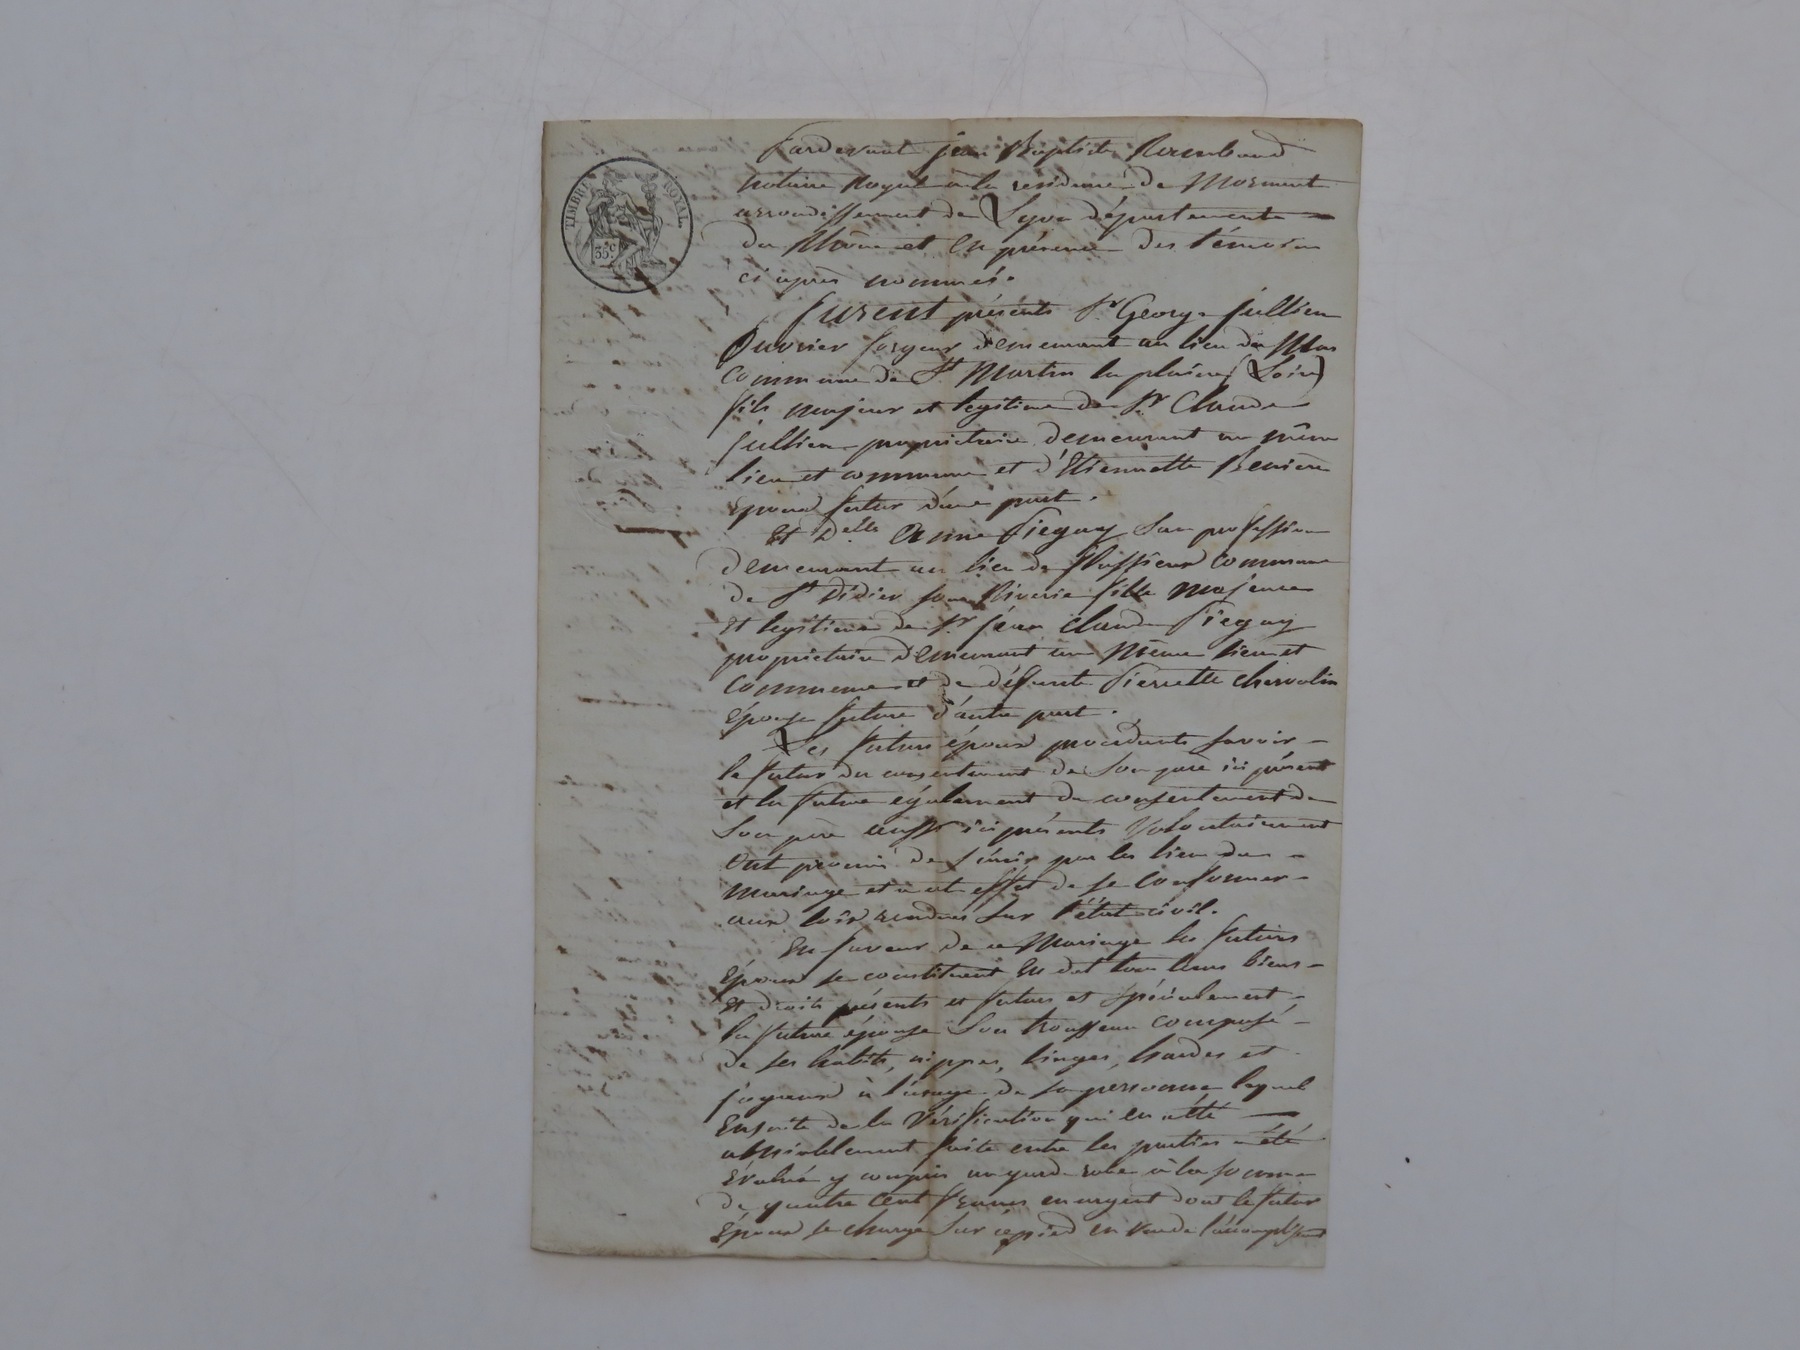 TIMBRE ROYAL
35 c
Pardevant jean Baptiste Rambaud
notaire royal à la residence de Mornant
arrondissement de Lyon département
du Rhône et en présence des témoins
ci après nommés.
furent présents Sr. George jullien
Ouvrier forgeur demeurant au lieu du Mas
commune de St Martin la plaine (Loire)
fils majeur et legitime de Sr Claude
jullien propriétaire demeurant au même
lieu et commune et d'Etiennette
époux futur d'une part.
Et Delle Anne Piegay San profession
demeurant au lieu de commune
de St Didier sous Riverie fille majeure
et legitime de Sr jean Claude Piegay
propriétaire demeurant au même lieu et
commune et de défunte Pierrette
épouse future d'autre part.
Les futurs époux procédants savoir
le futur du consentement de son père ici présent
et la future également du consentement de
son père aussi ici présents volontairement
Ont promis de s'unir par les lien du
mariage et a cet effet de se conformer
aux lois rendues sur l'état civil.
En faveur de ce Mariage les futurs
époux se constituent en dot tous leurs biens
et droits présents et futurs et spécialement
la future épouse son trousseau composé
de ses habits, nippes, linges, hardes et
joyaux à l'usage de sa personne lequel
Ensuite de la vérification qui en a été
amiablement faite entre les parties a été
évalué y compris un garde robe à la somme
de quatre cent francs en argent dont le futur
époux se charge sur ce pied en vue de l'accomplissement